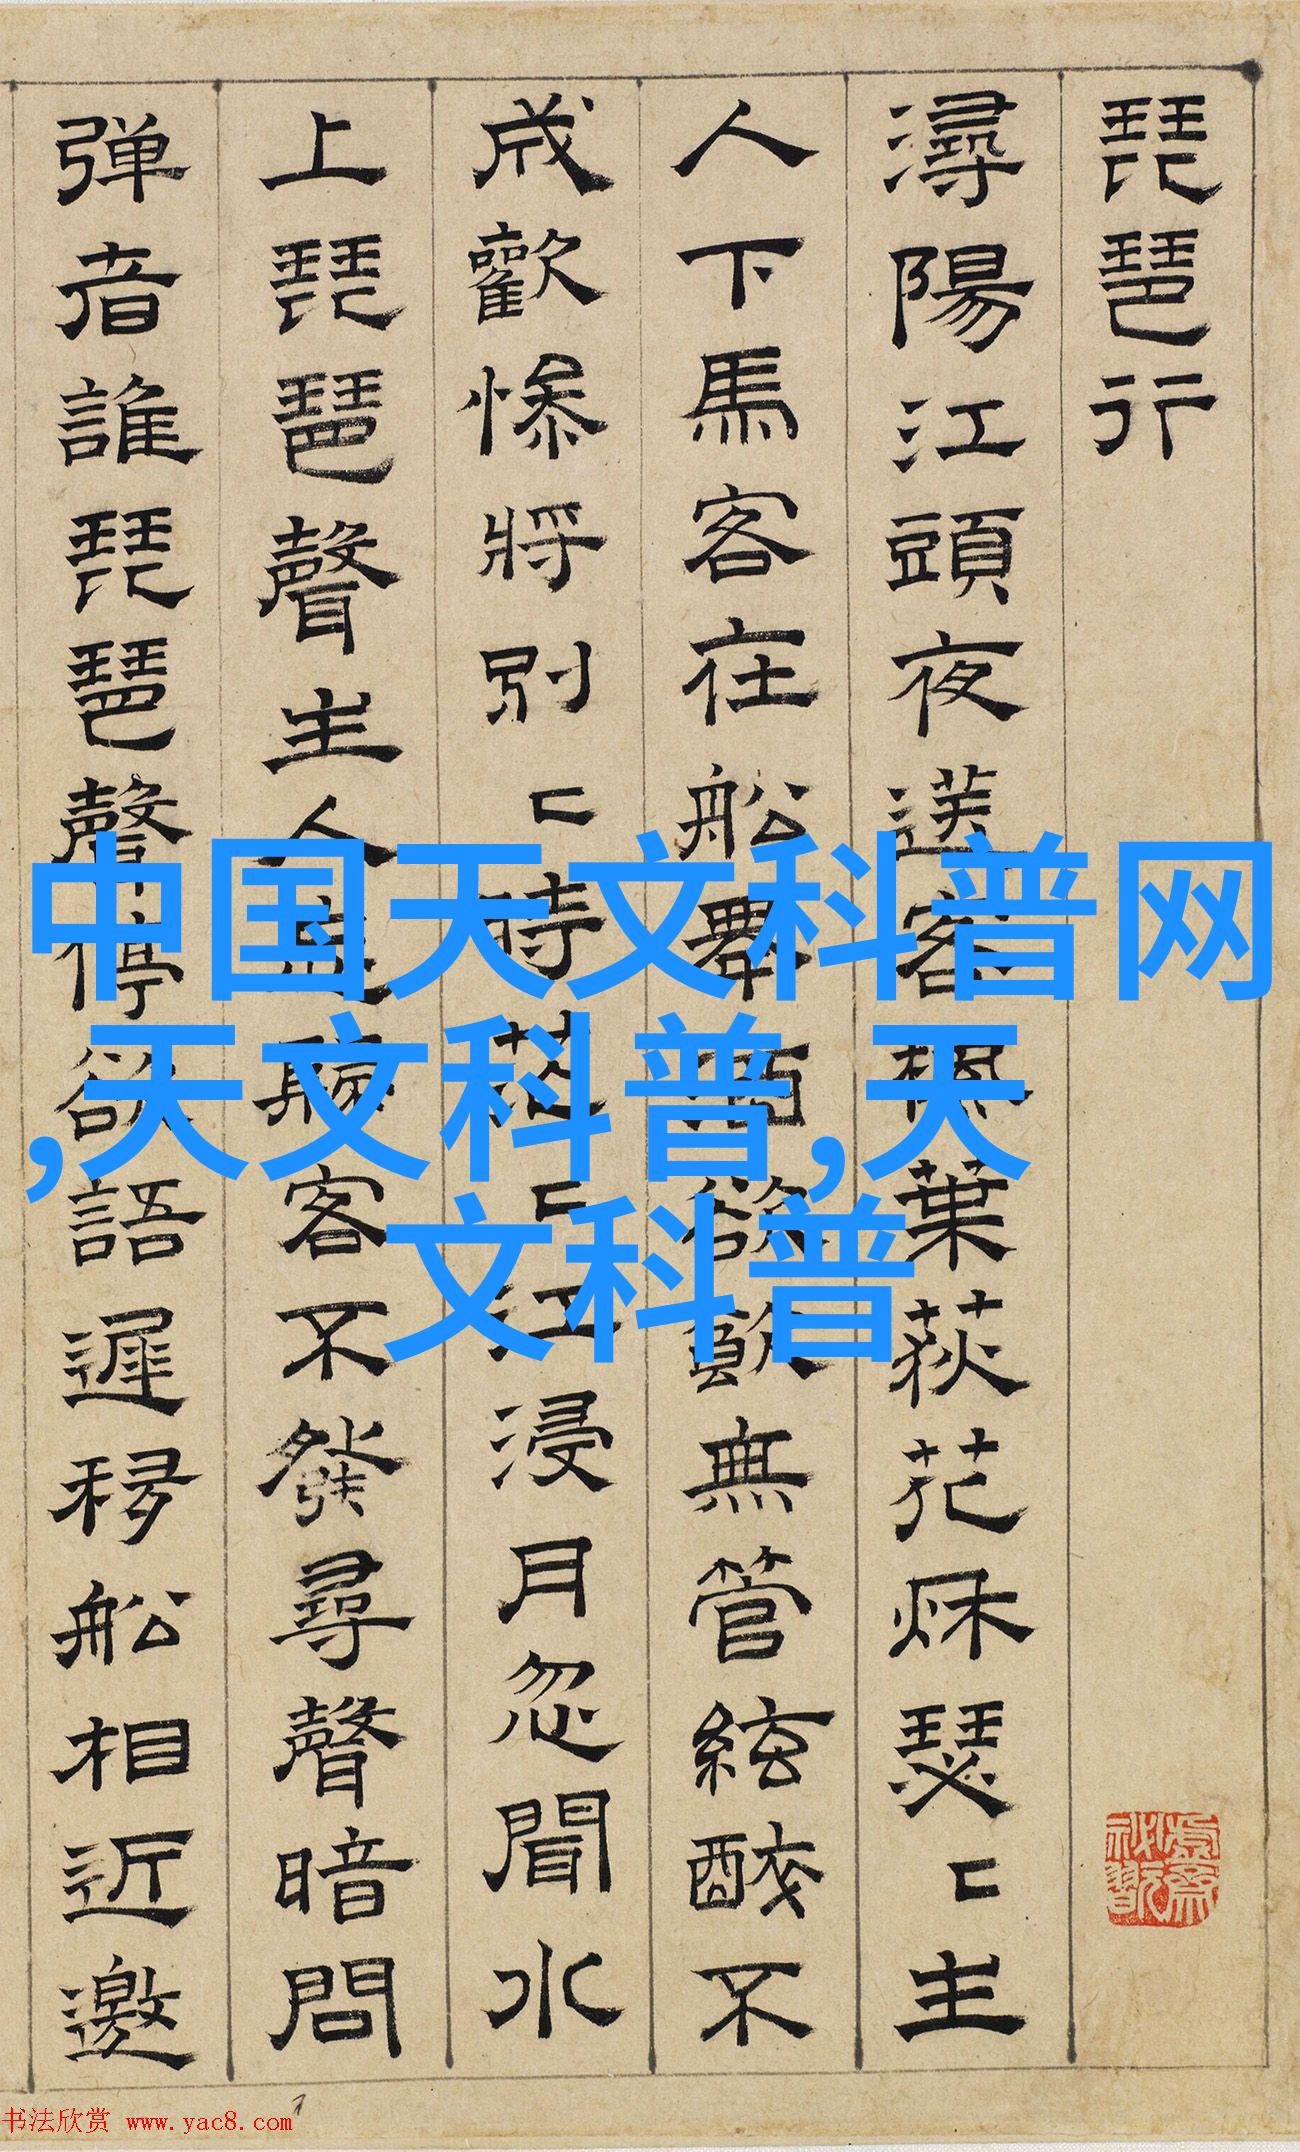 琵琶行
潯陽江頭夜送客楓葉荻花秌瑟〻主
人下馬客在船舉酒欲飲無管絃醉不
成歡慘將別〻時茫〻江浸月忽聞水
上琵琶聲主人忘歸客不發尋聲暗問
弹者誰琵琶聲停欲語遲移船相近邀
中国天文科普网
,天文科普,天
文科普
书法欣赏 www.yac8.com